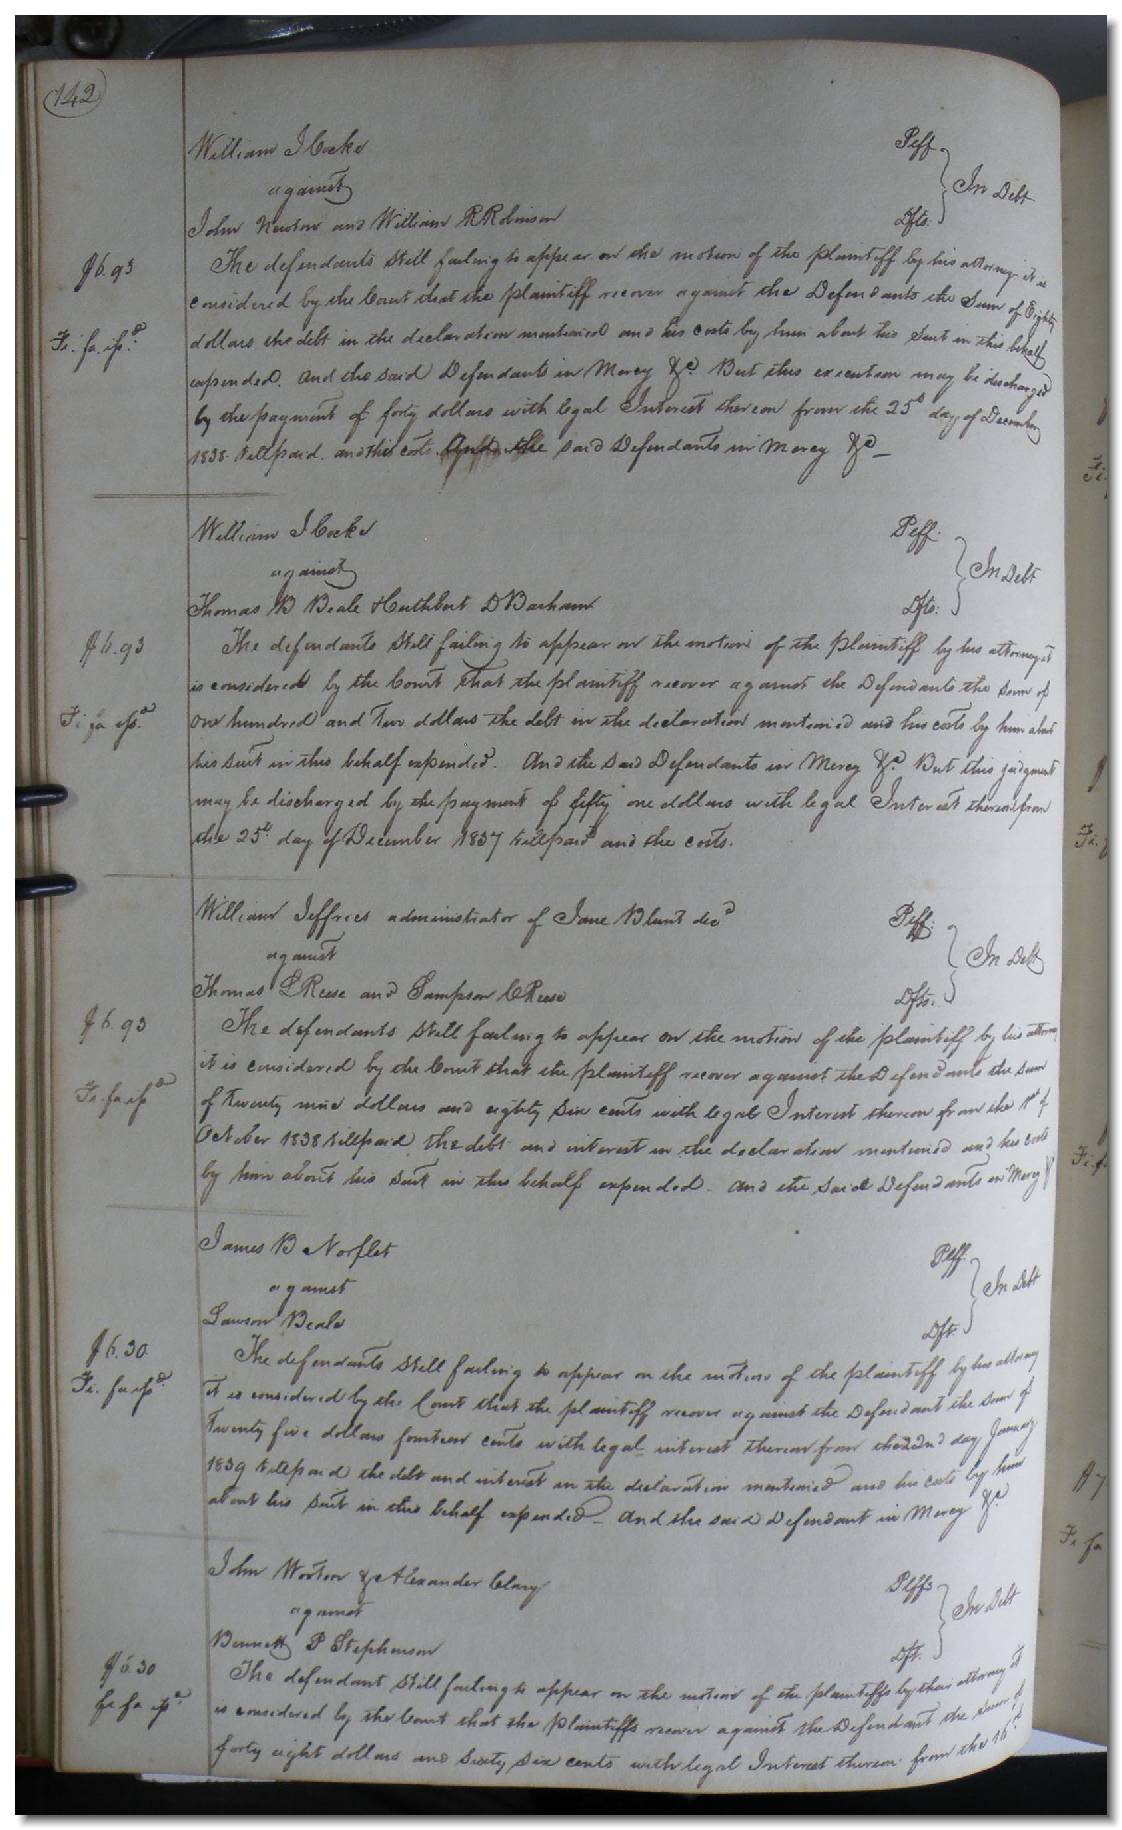 142
William J Cocke Plff.
against In Debt
John Newton and William R Robinson Dfts.
The defendants still failing to appear on the motion of the plaintiff by his attorney it is
$6.93
considered by the Court that the plaintiff recover against the Defendants the Sum of Eighty
dollars the debt in the declaration mentioned and his costs by him about his Suit in this behalf
Fi. fa. isd.
expended. And the said Defendants in Mercy &c. But this execution may be discharged
by the payment of forty dollars with legal Interest thereon from the 25th day of December
1838 till paid. and the costs. And the said Defendants in Mercy &c
William J Cocke Plff.
against In Debt
Thomas B Beale & Cuthbert D Barham Dfts.
The defendants still failing to appear on the motion of the plaintiff by his attorney it
$6.93
is considered by the Court that the plaintiff recover against the Defendants the sum of
Fi fa isd.
one hundred and two dollars the debt in the declaration mentioned and his costs by him about
his suit in this behalf expended. And the said Defendants in Mercy &c. But this judgment
may be discharged by the payment of fifty one dollars with legal Interest thereon from
the 25th day of December 1837 till paid and the costs.
William Jeffries administrator of Jane Blunt decd Plff.
against In Debt
Thomas L Reese and Sampson C Reese Dfts.
The defendants still failing to appear on the motion of the plaintiff by his attorney
$6.93
it is considered by the Court that the plaintiff recover against the Defendants the sum
Fi. fa isd
of twenty nine dollars and eighty six cents with legal Interest thereon from the 1st of
October 1838 till paid, the debt and interest in the declaration mentioned and his costs
by him about his suit in this behalf expended. And the said Defendants in Mercy &
James B Norflet Plff.
against In Debt
Lawson Beale Dft.
$6.30
The defendants still failing to appear on the motion of the plaintiff by his attorney
Fi. fa isd.
it is considered by the Court that the plaintiff recover against the Defendant the sum of
twenty five dollars fourteen cents with legal interest thereon from the 22nd day January
1839 till paid the debt and interest in the declaration mentioned and his costs by him
about his suit in this behalf expended. And the said Defendant in Mercy &c
John Wooton & Alexander Clary Plffs
against In Debt
Bennett P Stephenson Dft.
The defendant still failing to appear on the motion of the plaintiffs by their attorney it
$6.30
is considered by the Court that the plaintiffs recover against the Defendant the sum of
fi fa isd.
forty eight dollars and sixty six cents with legal Interest thereon from the 16th